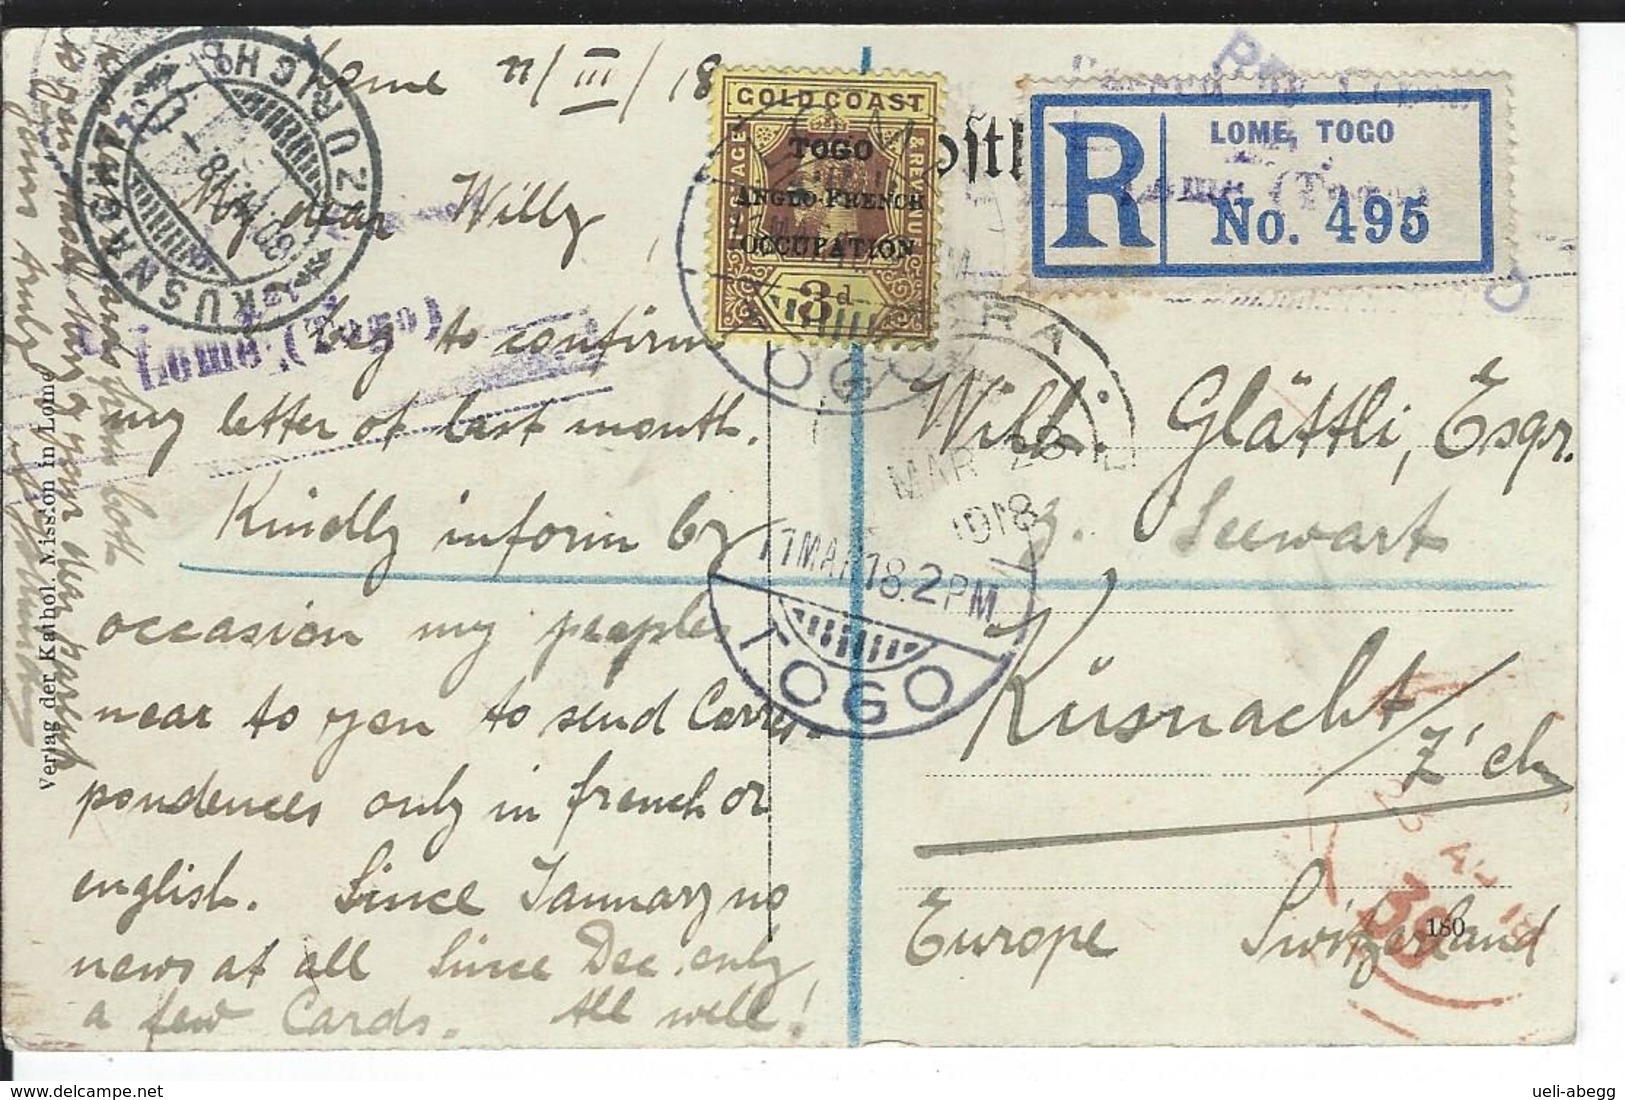 Lome 11/III/18
My dear Willy,
beg to confirm
my letter of last month.
Kindly inform by
occasion my peoples
near to you to send Corres-
pondences only in french or
english. Since January no
news at all Since Dec. only
a few Cards. All well!
Kind regards from both
to you most
your dear parents
yours truly
Verlag der Kathol. Mission in Lome
GOLD COAST
POSTAGE & REVENUE
TOGO
ANGLO-FRENCH
OCCUPATION
3d
R
LOME, TOGO
No. 495
Lome (Togo)
Lome (Togo)
KÜSNACHT
ZÜRICH
TOGO
ACCRA
MAR 23
1918
11 MAR 18. 2 PM
TOGO
Wilh. Glättli, Esqr.
z. Seewart
Küsnacht/
Z'ch
Europe Switzerland
180
ueli-abegg